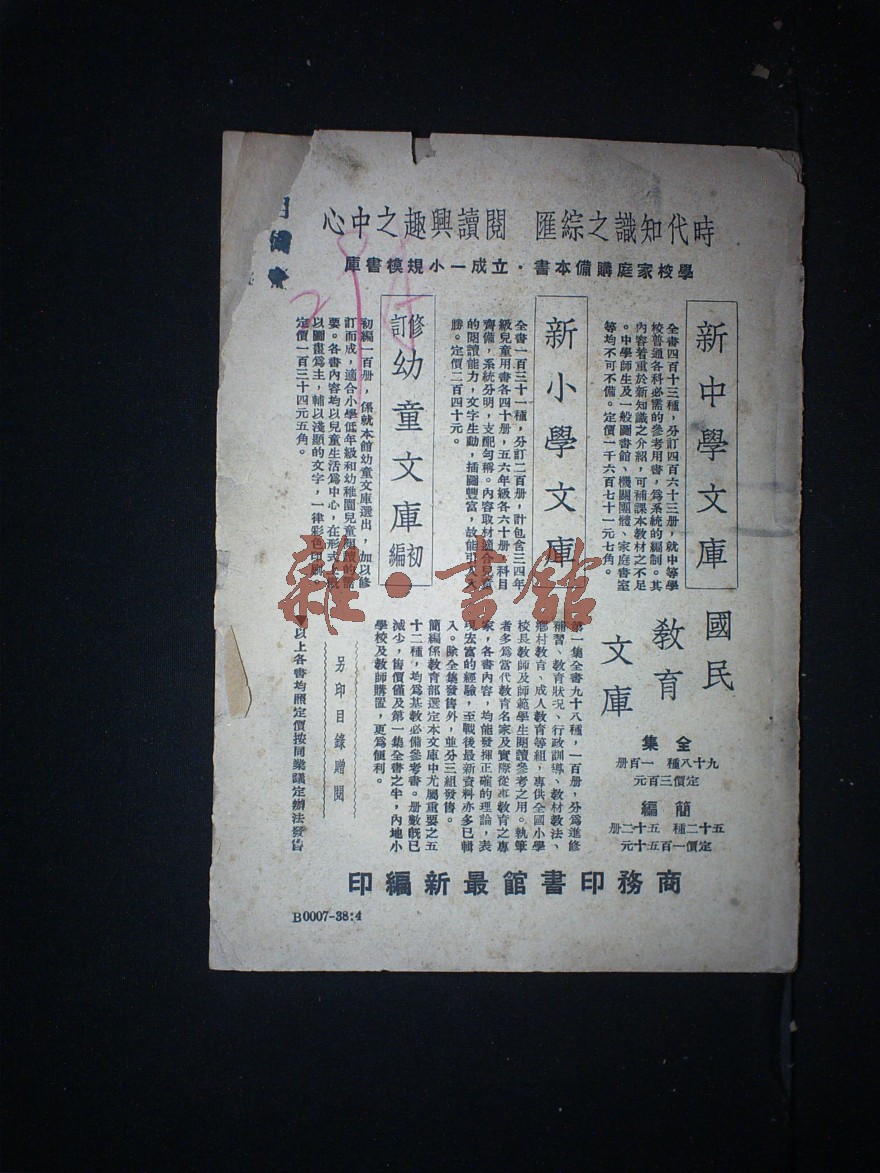 時代知識之綜匯　閱讀興趣之中心
學校家庭購備本書·立成一小規模書庫
新中學文庫
全書四百十三種，分訂四百六十三册，就中等學
校普通各科必需的參考用書，爲系統的編制。其
內容着重於新知識之介紹，可補課本教材之不足
。中學師生及一般圖書館、機關團體、家庭書室
等均不可不備。定價一千六百七十一元七角。
新小學文庫
全書一百三十一種，分訂二百册，計包含三四年
級兒童用書各四十册，五六年級各六十册，科目
齊備，系統分明，支配勻稱。內容取材適合兒童
的閱讀能力，文字生動，插圖豐富，故能引人入
勝。定價二百四十元。
修訂幼童文庫初編
初編一百册，係就本館幼童文庫選出，加以修
訂而成，適合小學低年級和幼稚園兒童閱讀的需
要。各書內容均以兒童生活爲中心，在形式上
以圖畫爲主，輔以淺顯的文字，一律彩色印刷
定價一百三十四元五角。
國民
教育
文庫
全集
九十八種　一百册
定價三百元
簡編
五十二種　五十二册
定價一百五十元
第一集全書九十八種，一百册，分爲進修
補習、教育狀况、行政訓導、教材教法、
鄉村教育、成人教育等組，專供全國小學
校長教師及師範學生閱讀參考之用。執筆
者多爲當代教育名家及實際從事教育之專
家，各書內容，均能發揮正確的理論，表
現宏富的經驗，至戰後最新資料亦多已輯
入。除全集發售外，並分三組發售。
簡編係教育部選定本文庫中尤屬重要之五
十二種，均爲基教必備參考書。册數旣已
減少，售價僅及第一集全書之半，內地小
學校及教師購置，更爲便利。
另印目錄贈閱
以上各書均照定價按同業議定辦法發售
商務印書館最新編印
B0007-38:4
雜·書館